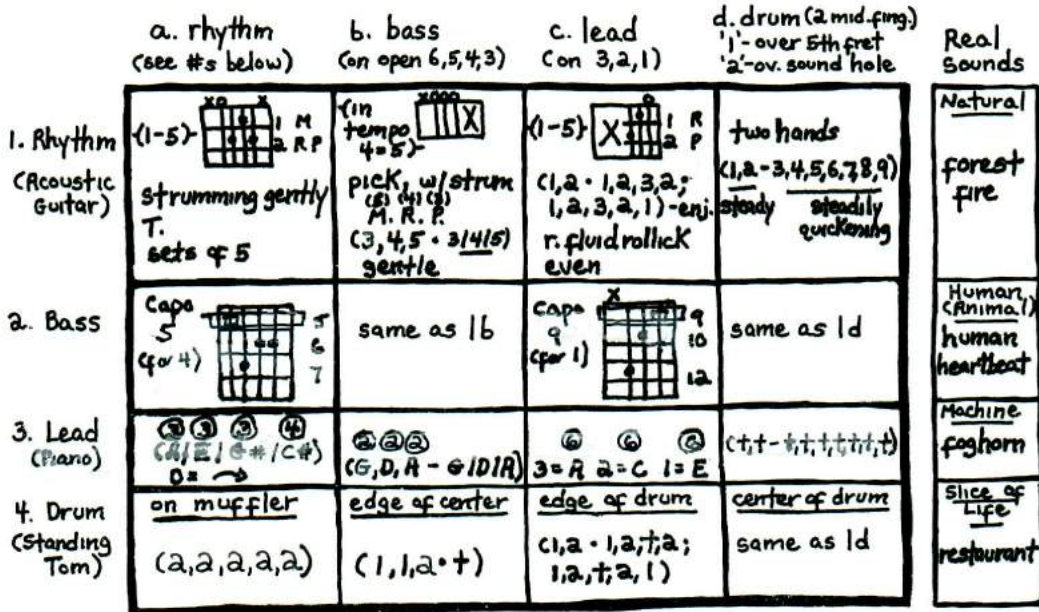 a. rhythm
(see #s below)
b. bass
(on open 6,5,4,3)
c. lead
(on 3,2,1)
d. drum (2 mid. fing.)
'1'- over 5th fret
'2'-ov. sound hole
Real
Sounds
1. Rhythm
(Acoustic
Guitar)
(1-5)
xo x
1 M
2 R P
strumming gently
T.
sets of 5
(in
tempo
4=5)
xooo
X
pick, w/strum
(5) (4) (3)
M. R. P.
(3,4,5 · 3/4/5)
gentle
(1-5)
o
X
1 R
2 P
(1,2 · 1,2,3,2;
1,2,3,2,1)-enj.
r. fluid rollick
even
two hands
(1,2-3,4,5,6,7,8,9)
steady steadily
quickening
Natural
forest
fire
2. Bass
Capo
5
(for 4)
5
6
7
same as 1b
Capo
9
(for 1)
x
9
10
12
same as 1d
Human
(Animal)
human
heartbeat
3. Lead
(Piano)
3 3 4
(A/E/G#/C#)
2 2 2
(G,D,A - G/D/A)
6 6 6
3=A 2=C 1=E
(t,t-t,t,t,t,t,t)
Machine
foghorn
4. Drum
(Standing
Tom)
on muffler
(2,2,2,2,2)
edge of center
(1,1,2·t)
edge of drum
(1,2 · 1,2,t,2;
1,2,t,2,1)
center of drum
same as 1d
Slice of
Life
restaurant